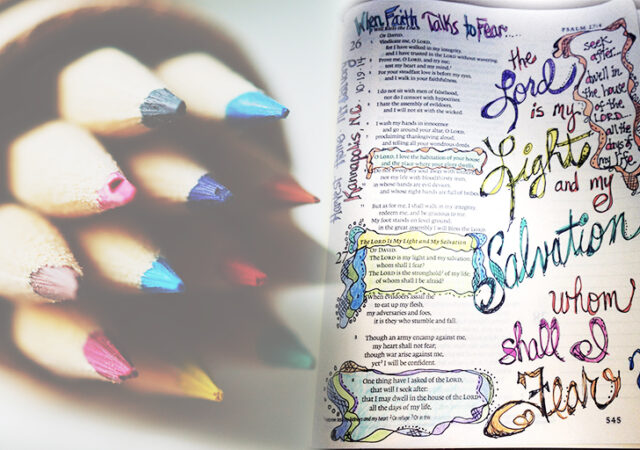 When Faith Talks to Fear...
PSALM 27:4
26
OF DAVID.
Vindicate me, O LORD,
for I have walked in my integrity,
and I have trusted in the LORD without wavering.
Prove me, O LORD, and try me;
test my heart and my mind.
For your steadfast love is before my eyes,
and I walk in your faithfulness.
I do not sit with men of falsehood,
nor do I consort with hypocrites.
I hate the assembly of evildoers,
and I will not sit with the wicked.
I wash my hands in innocence
and go around your altar, O LORD,
proclaiming thanksgiving aloud,
and telling all your wondrous deeds.
O LORD, I love the habitation of your house
and the place where your glory dwells.
nor my life with bloodthirsty men,
in whose hands are evil devices,
and whose right hands are full of bribes.
But as for me, I shall walk in my integrity;
redeem me, and be gracious to me.
My foot stands on level ground;
in the great assembly I will bless the LORD.
The LORD Is My Light and My Salvation
27
OF DAVID.
The LORD is my light and my salvation;
whom shall I fear?
The LORD is the stronghold of my life;
of whom shall I be afraid?
When evildoers assail me
to eat up my flesh,
my adversaries and foes,
it is they who stumble and fall.
Though an army encamp against me,
my heart shall not fear;
though war arise against me,
yet I will be confident.
One thing have I asked of the LORD,
that will I seek after:
that I may dwell in the house of the LORD
all the days of my life,
Kannapolis, NC 10·19·14
the
Lord
is my
Light
and my
Salvation
whom
shall I
Fear?
seek
after
dwell in
the house
of the
LORD
all the
days of
my life
545